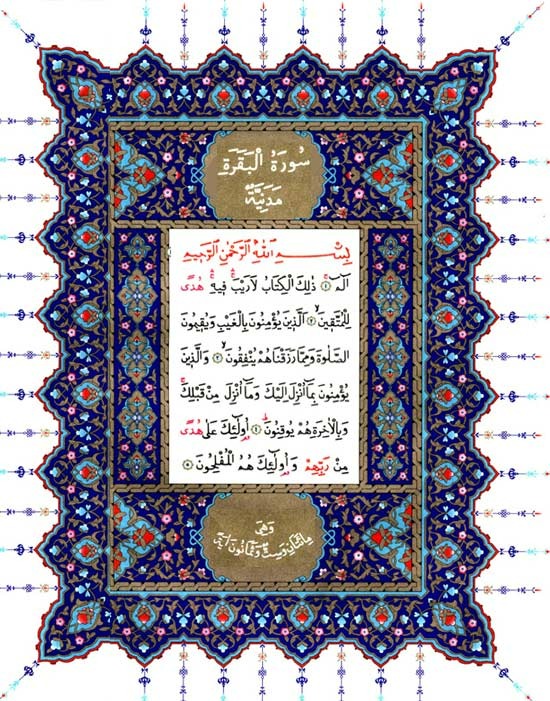 سُورَةُ الْبَقَرَةِ
مَدَنِيَّةٌ
بِسْمِ اللّٰهِ الرَّحْمٰنِ الرَّحِيمِ
الٓمٓ ۚ ﴿١﴾ ذٰلِكَ الْكِتَابُ لَا رَيْبَ ۚ فِيهِ ۚ هُدًى
لِلْمُتَّقِينَ ۙ ﴿٢﴾ اَلَّذِينَ يُؤْمِنُونَ بِالْغَيْبِ وَيُقِيمُونَ
الصَّلٰوةَ وَمِمَّا رَزَقْنَاهُمْ يُنْفِقُونَ ۙ ﴿٣﴾ وَالَّذِينَ
يُؤْمِنُونَ بِمَٓا اُنْزِلَ اِلَيْكَ وَمَٓا اُنْزِلَ مِنْ قَبْلِكَ ۚ
وَبِالْاٰخِرَةِ هُمْ يُوقِنُونَ ۜ ﴿٤﴾ اُو۬لٰٓئِكَ عَلٰى هُدًى
مِنْ رَبِّهِمْ وَاُو۬لٰٓئِكَ هُمُ الْمُفْلِحُونَ ﴿٥﴾
وَهِيَ
مِائَتَانِ وَسِتٌّ وَثَمَانُونَ اٰيَةً